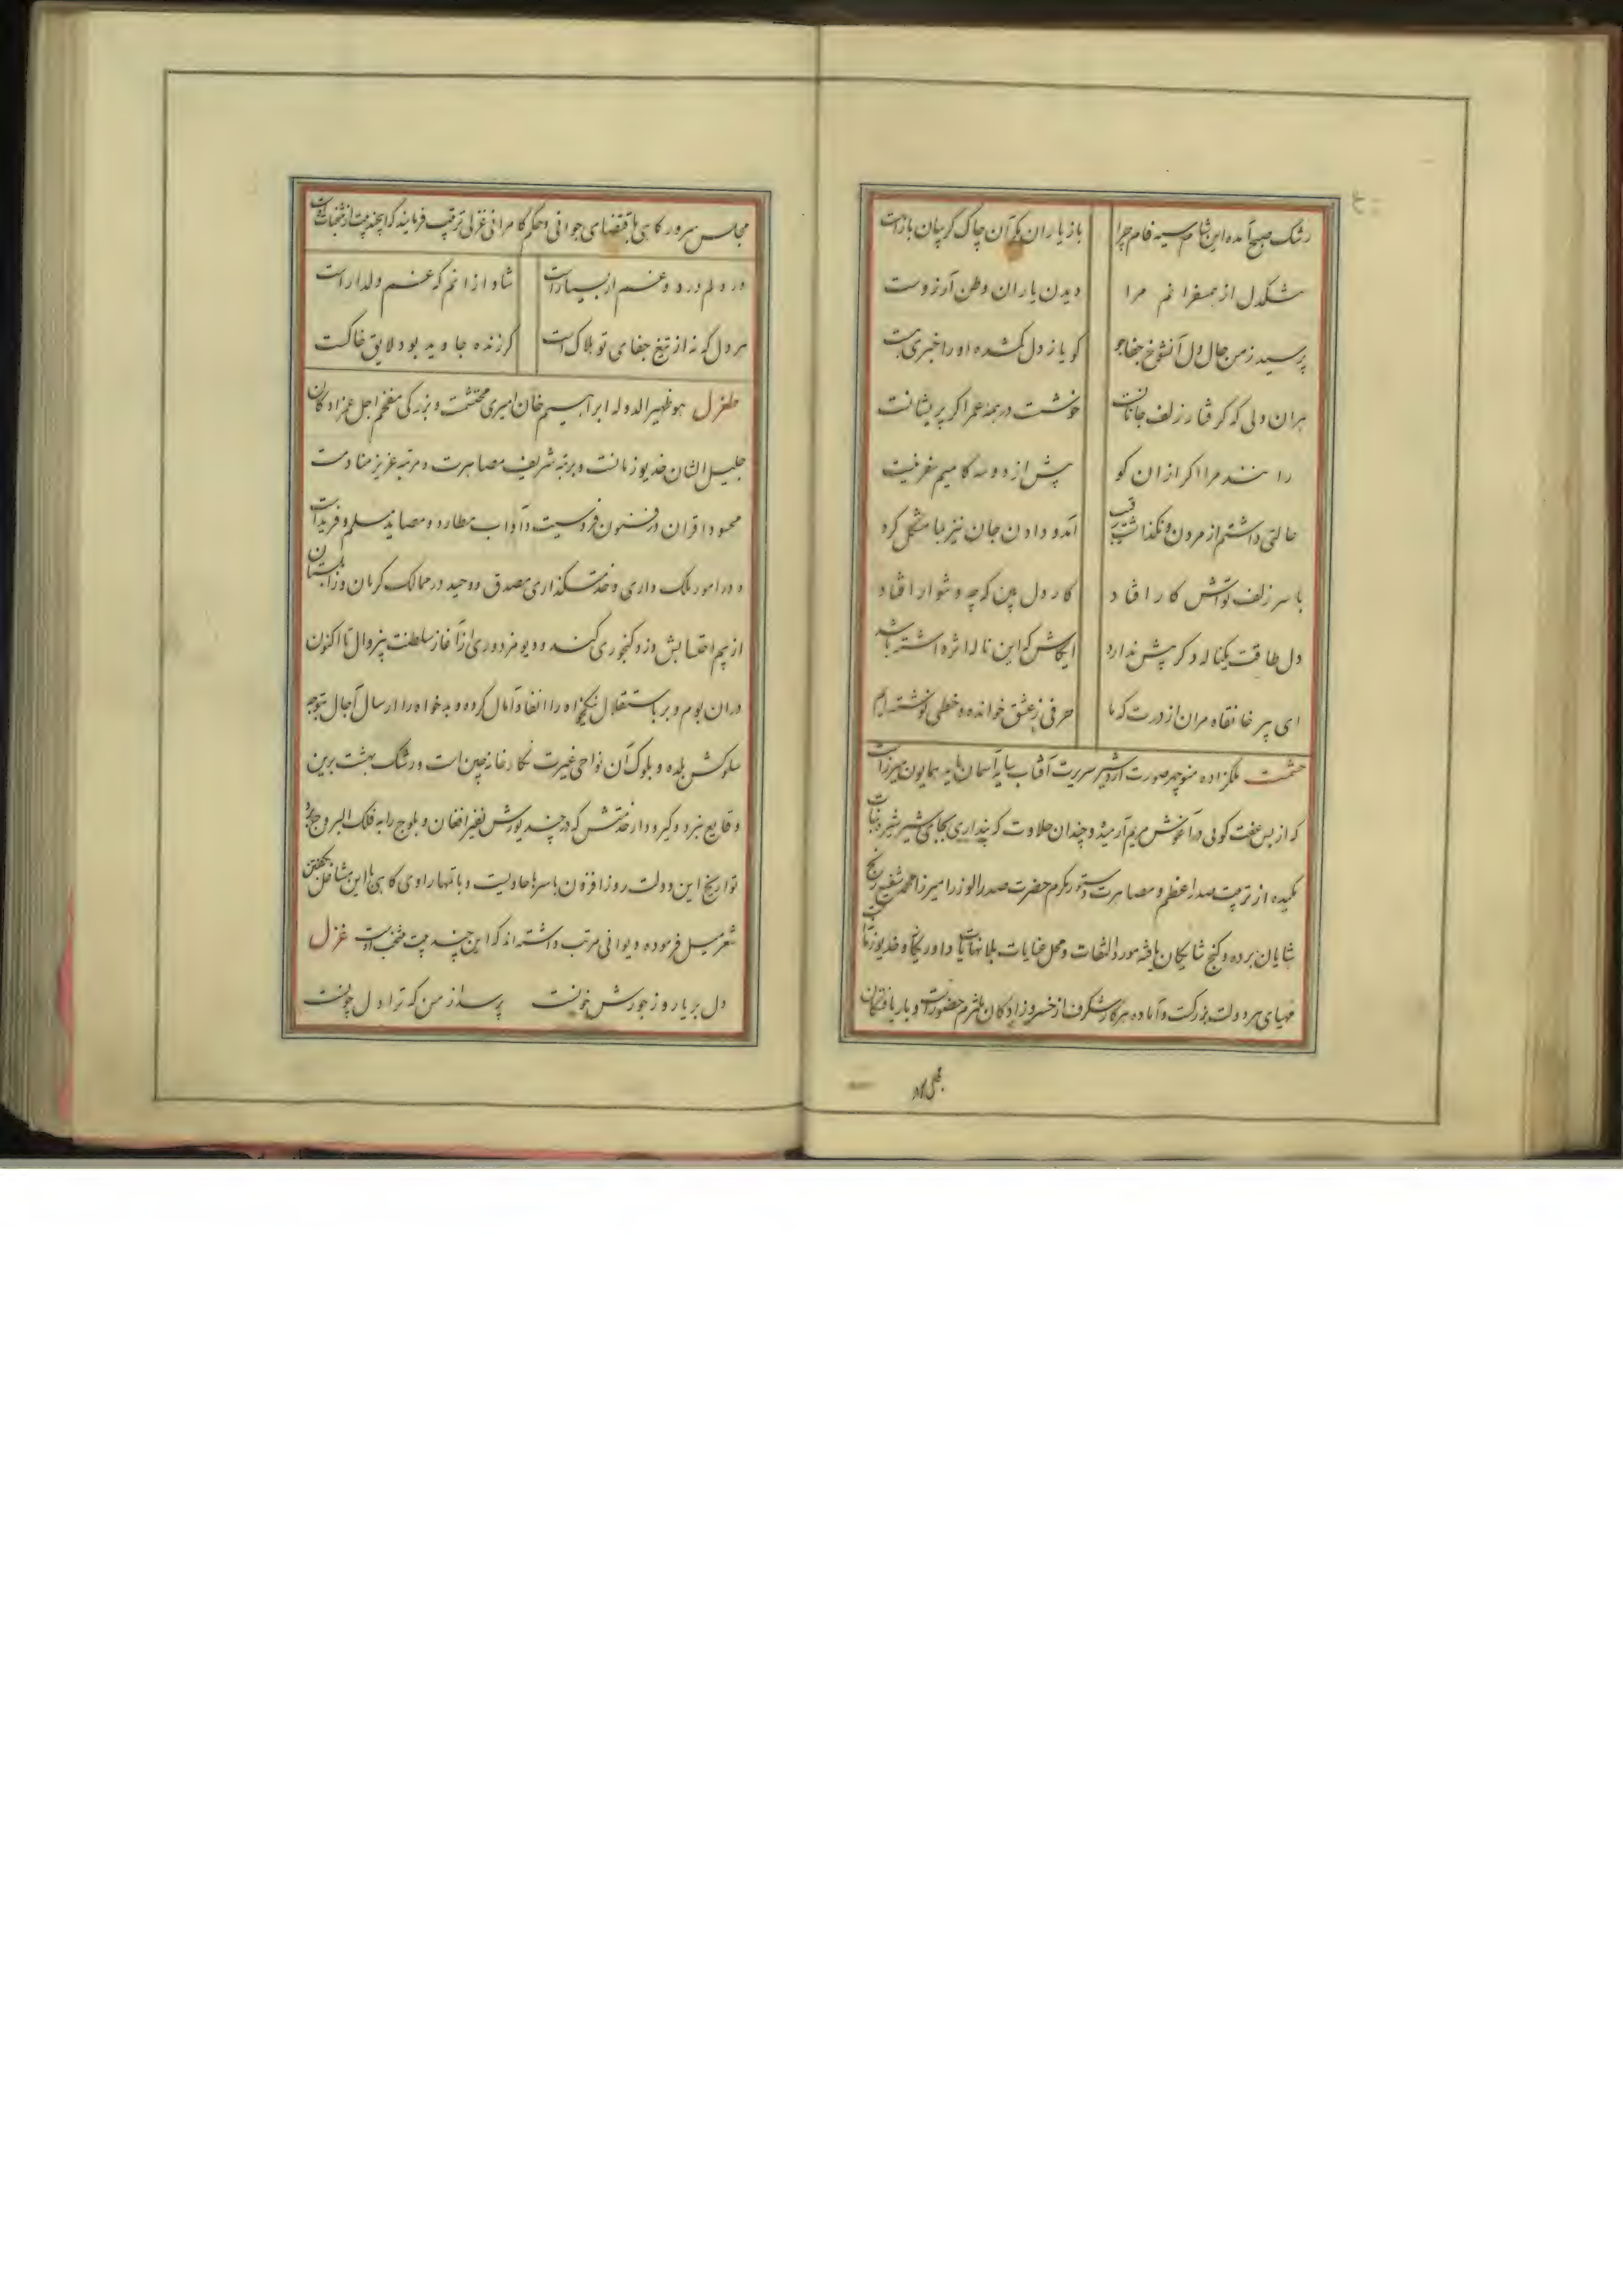 رشک صبح آمده این شام سیه فام چرا باز یاران مگر آن چاک گریبان بازست
تنگدل از همسفرانم مرا دیدن یاران وطن آرزوست
پرسید ز من حال دل آن شوخ جفاجو گویا ز دل گمشده او را خبری هست
هران دلی که گرفتار زلف جانانست خوشست در همه عمر اگر پریشانست
رانند مرا اگر از ان کو پیش از دو سه گامیم سفر نیست
حالتی داشتم از مردن و نگذاشت رقیب آمد و دادن جان نیز بما مشکل کرد
با سر زلف تواش کار افتاد کار دل بین که چه دشوار افتاد
دل طاقت یک ناله دگر پیش ندارد ایکاش که این ناله اثر داشته باشد
ای پیر خانقاه مران از درت که ما حرفی ز عشق خوانده و خطی نوشته‌ایم
حشمت ملکزاده منوچهر صورت اردشیر سریرت آفتاب سایه آسمان پایه همایون میرزاست
که از بس عفت گویی در آغوش مریم آرمیده و چندان حلاوت که پنداری بجای شیر شیره نبات
مکیده از تربیت صدر اعظم و مصاهرت دستور مکرم حضرت صدر الوزرا میرزا محمد شفیع رنج
شایان برده و گنج شایگان یافته مورد التفات و محل عنایات بلانهایات داور یگانه و خدیو زمانست
مهیای هر دولت بزرگست و آماده هر کار شگرف از خسروزادگان ملتزم حضورست و بار یافتگان
مجلس سرور
مجلس سرور گاهی باقتضای جوانی و حکم کامرانی غزلی ترتیب فرمایند که این چند بیت از منتخبات است
در دلم درد و غم ار بسیارست شادم از انم که غم دلدارست
هر دل که نه از تیغ جفای تو هلاک است گر زنده جاوید بود لایق خاکست
طغرل هو ظهیر الدوله ابراهیم خان امیری محتشمست و بزرگی مفخم اجل عمزادگان
جلیل الشان خدیو زمانست و برتبه شریف مصاهرت و مرتبه عزیز منادمت
محسود اقران در فنون فروسیت و آداب مطارد و مصاید مسلم و فریدست
و در امور ملک داری و خدمتگذاری مصدق و وحید در ممالک کرمان و زابلستان
از بیم احتسابش دزد گنجوری کند و دیو مزدوری از آغاز سلطنت بیزوال تا اکنون
دران بوم و بر باستقلال نیکخواه را انفاد آمال کرده و بدخواه را ارسال آجال بتوجه
سلوکش بلده و بلوک آن نواحی غیرت نگارخانه چین است و رشک بهشت برین
وقایع نبرد و گیر و دار خدمتش که در چند یورش نفیر افغان و بلوچ را به فلک البروج برده
تواریخ این دولت روز افزون باسرها حاویست و بانتهار راوی گاهی با این مشاغل بگفتن
شعر میل فرموده دیوانی مرتب داشته‌اند که این چند بیت منتخب اوست غزل
دل بر یار و ز جورش خونست پرسد از من که ترا دل چونست